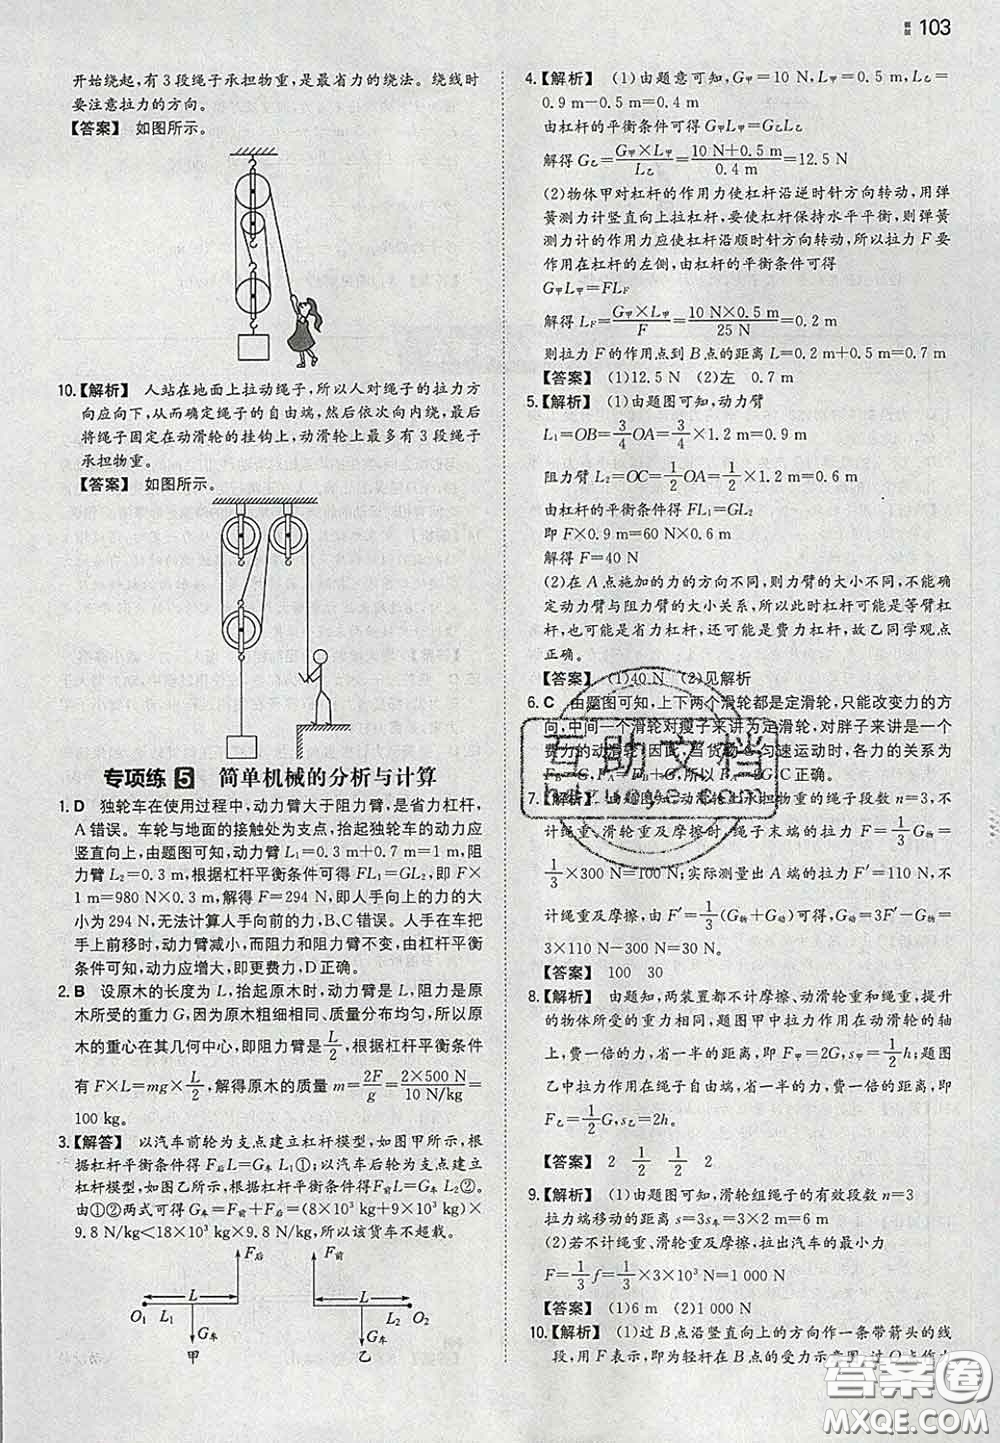 解析 103
开始绕起，有3段绳子承担物重，是最省力的绕法。绕线时
要注意拉力的方向。
【答案】 如图所示。
10.【解析】 人站在地面上拉动绳子，所以人对绳子的拉力方
向应向下，从而确定绳子的自由端，然后依次向内绕，最后
将绳子固定在动滑轮的挂钩上，动滑轮上最多有3段绳子
承担物重。
【答案】 如图所示。
专项练5 简单机械的分析与计算
1. D 独轮车在使用过程中，动力臂大于阻力臂，是省力杠杆，
A错误。车轮与地面的接触处为支点，抬起独轮车的动力应
竖直向上，由题图可知，动力臂 L₁=0.3 m+0.7 m=1 m，阻
力臂 L₂=0.3 m，根据杠杆平衡条件可得 FL₁=GL₂，即 F×
1 m=980 N×0.3 m，解得 F=294 N，即人手向上的力的大
小为 294 N，无法计算人手向前的力，B、C错误。人手在车把
手上前移时，动力臂减小，而阻力和阻力臂不变，由杠杆平衡
条件可知，动力应增大，即更费力，D正确。
2. B 设原木的长度为 L，抬起原木时，动力臂是 L，阻力是原
木所受的重力 G，因为原木粗细相同、质量分布均匀，所以原
木的重心在其几何中心，即阻力臂是 L/2，根据杠杆平衡条件
有 F×L=mg×L/2，解得原木的质量 m=2F/g=2×500 N/10 N/kg=
100 kg。
3.【解答】 以汽车前轮为支点建立杠杆模型，如图甲所示，根
据杠杆平衡条件得 F后L=G车 L₁①；以汽车后轮为支点建立
杠杆模型，如图乙所示，根据杠杆平衡条件得 F前L=G车 L₂②。
由①②两式可得 G车=F前+F后=(8×10³ kg+9×10³ kg)
×9.8 N/kg<18×10³ kg×9.8 N/kg，所以该货车不超载。
F后 L O₁ L₁ G车 甲
F前 L L₂ O₂ G车 乙
4.【解析】 (1)由题意可知，G甲=10 N，L甲=0.5 m，L乙=
0.9 m-0.5 m=0.4 m
由杠杆的平衡条件可得 G甲L甲=G乙L乙
解得 G乙=G甲×L甲/L乙=10 N+0.5 m/0.4 m=12.5 N
(2)物体甲对杠杆的作用力使杠杆沿逆时针方向转动，用弹
簧测力计竖直向上拉杠杆，要使杠杆保持水平平衡，则弹簧
测力计的作用力应使杠杆沿顺时针方向转动，所以拉力 F 要
作用在杠杆的左侧，由杠杆的平衡条件可得
G甲L甲=FLF
解得 LF=G甲×L甲/F=10 N×0.5 m/25 N=0.2 m
则拉力 F 的作用点到 B 点的距离 L=0.2 m+0.5 m=0.7 m
【答案】 (1)12.5 N (2)左 0.7 m
5.【解析】 (1)由题图可知，动力臂
L₁=OB=3/4OA=3/4×1.2 m=0.9 m
阻力臂 L₂=OC=1/2OA=1/2×1.2 m=0.6 m
由杠杆的平衡条件得 FL₁=GL₂
即 F×0.9 m=60 N×0.6 m
解得 F=40 N
(2)在 A 点施加的力的方向不同，则力臂的大小不同，不能确
定动力臂与阻力臂的大小关系，所以此时杠杆可能是等臂杠
杆，也可能是省力杠杆，还可能是费力杠杆，故乙同学观点
正确。
【答案】 (1)40 N (2)见解析
6. C 由题图可知，上下两个滑轮都是定滑轮，只能改变力的方
向，中间一个滑轮对瘦子来讲为定滑轮，对胖子来讲是一个
费力的动滑轮，因此，当货物匀速运动时，各力的关系为
7.【解析】 由题图知，动滑轮上承担物重的绳子段数 n=3，不
计绳重、滑轮重及摩擦时，绳子末端的拉力 F=1/3G=
1/3×300 N=100 N；实际测量出 A 端的拉力 F′=110 N，
不计绳重及摩擦，由 F′=1/3(G物+G动)可得，G动=3F′-G物=
3×110 N-300 N=30 N。
【答案】 100 30
8.【解析】 由题知，两装置都不计摩擦、动滑轮重和绳重，提升
的物体所受的重力相同，题图甲中拉力作用在动滑轮的轴
上，费一倍的力、省一半的距离，即 F甲=2G，s甲=1/2h；题图
乙中拉力作用在绳子自由端，省一半的力、费一倍的距离，即
F乙=1/2G，s乙=2h。
【答案】 2 1/2 1/2 2
9.【解析】 (1)由题图可知，滑轮组绳子的有效段数 n=3
拉力端移动的距离 s=3s车=3×2 m=6 m
(2)若不计绳重、滑轮重及摩擦，拉出汽车的最小力
F=1/3f=1/3×3×10³ N=1 000 N
【答案】 (1)6 m (2)1 000 N
10.【解析】 (1)过 B 点沿竖直向上的方向作一条带箭头的线
段，用 F 表示，即为轻杆在 B 点的受力示意图，过 O 点作力
互助文档
答案圈
MXQE.COM